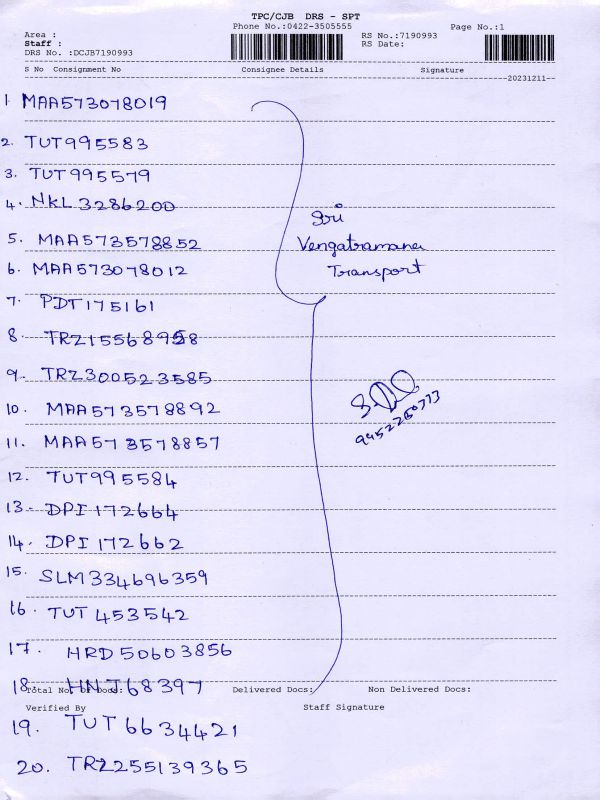 TPC/CJB DRS - SPT
Phone No.:0422-3505555
Page No.:1
Area :
RS No.:7190993
Staff :
RS Date:
DRS No. :DCJB7190993
S No Consignment No Consignee Details Signature
20231211
1. MAA573078019
2. TUT995583
3. TUT995579
4. NKL3286200
5. MAA573578852
6. MAA573078012
7. PDT175161
8. TRZ15568958
9. TRZ300523585
10. MAA573578892
11. MAA573578857
12. TUT995584
13. DPI172664
14. DPI172662
15. SLM334696359
16. TUT453542
17. HRD50603856
18. HNJ68397
19. TUT6634421
20. TRZ255139365
Sri
Vengatramana
Transport
9952260773
Total No. of Docs: Delivered Docs: Non Delivered Docs:
Verified By Staff Signature